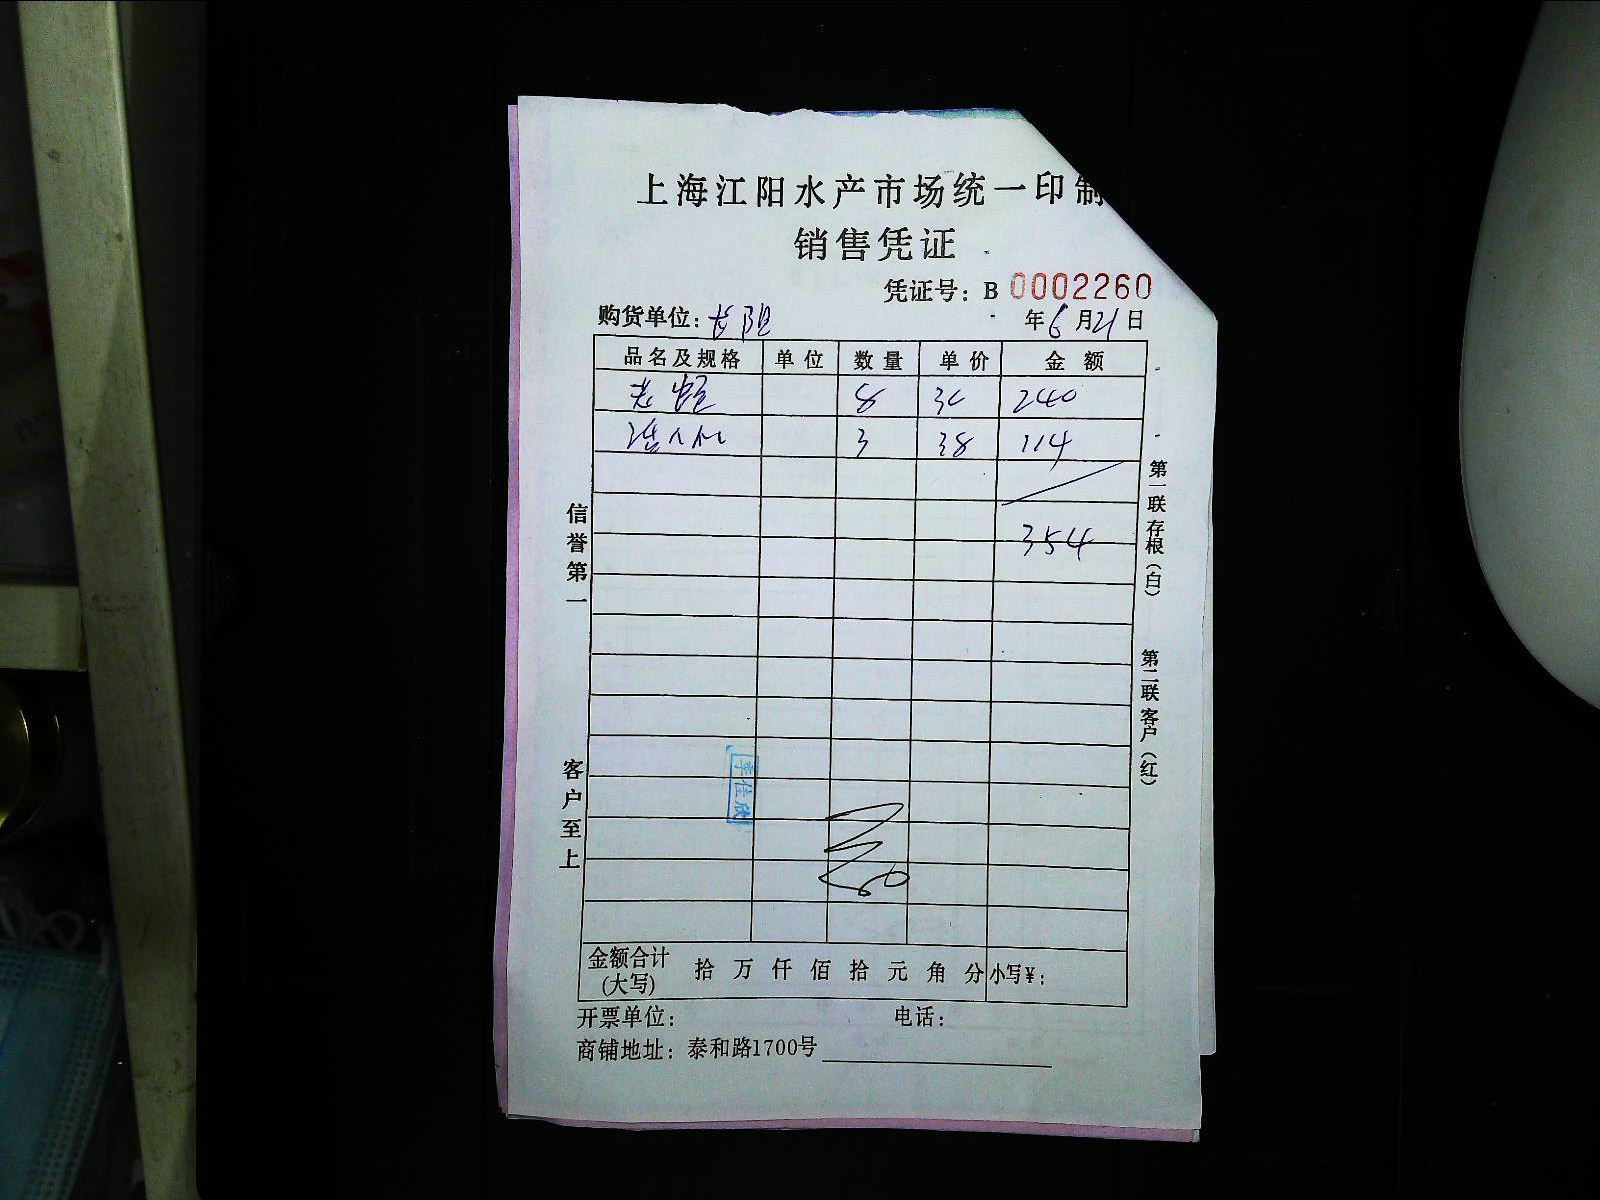 上海江阳水产市场统一印制
销售凭证
凭证号：B 0002260
购货单位：
年6月21日
品名及规格 单位 数量 单价 金额
8 30 240
3 38 114
354
信誉第一
客户至上
第一联存根（白）
第二联客户（红）
李佳欣
金额合计（大写） 拾 万 仟 佰 拾 元 角 分 小写¥：
开票单位： 电话：
商铺地址：泰和路1700号